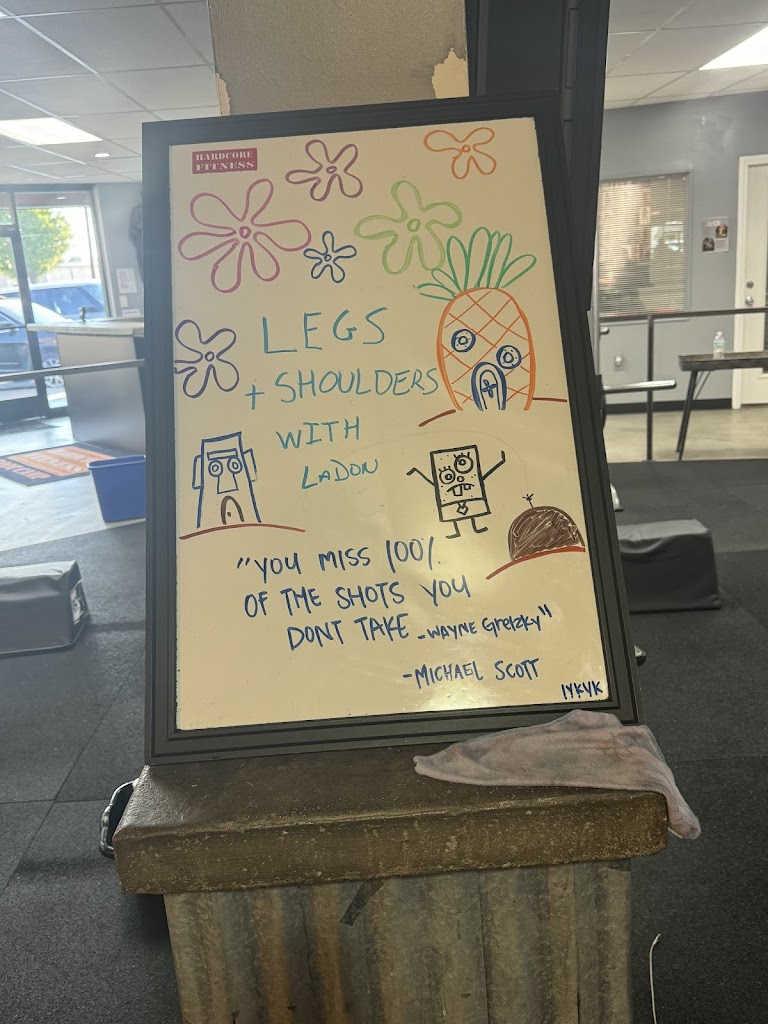 HARDCORE
FITNESS
LEGS
+ SHOULDERS
WITH
LADON
"YOU MISS 100%
OF THE SHOTS YOU
DONT TAKE -WAYNE Gretzky"
-MICHAEL SCOTT
IYKYK